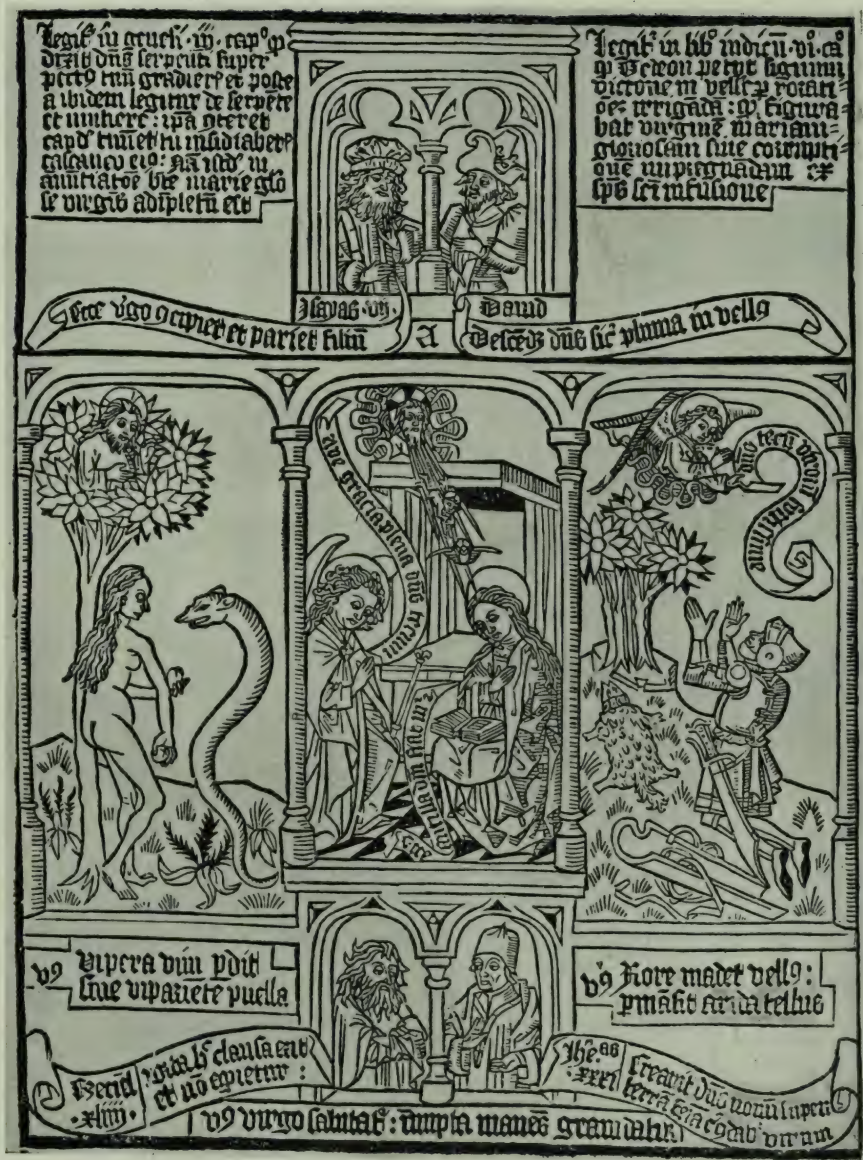 Legit̄ in geneſi ·iij· cap° ꝙ
dixit dn̄s ſerpenti ſuper
pect9 tuū gradier̄ et poſte
a ibidem legitur de ſerpēte
et muliere : ip̄a 9teret
caput tuū et tu inſidiaber̄
calcaneo ei9 : Nā iſtud in
annūtiatōe bt̄e marie glo
ſe virgīs adīpletū eſt
Legit̄ in lib° iudicū ·vi· ca°
ꝙ Gedeon petyt ſignum
victorie in vellere ꝑ rorati-
oēz irrigādā : ꝙ figura-
bat virginē mariam
glorioſam ſine corrupti-
one impregnādam ex
ſpūs ſcī infuſione
Iſayas ·vij·
Dauid
Ecce v̄go 9cipiet et pariet filiū
A
Deſcēdz dn̄s ſic̄ pluuia in vell9
Aue gracia plena dn̄s tecum
Ecce
fiat m̄
dn̄s tecū virorū fortiſſime
v9 Vipera vim ꝑdit
ſine vi pariēte puella
v9 Rore madet vell9 :
ꝑmāſit arida tellus
Ezeciel
·xliiij·
porta h̄ clauſa erit
et nō aꝑietur :
Ihe.as
·xxxi·
Creauit dn̄s nouū ſuper
terrā
v9 virgo ſalutat̄ : īnupta manēs grauidatur